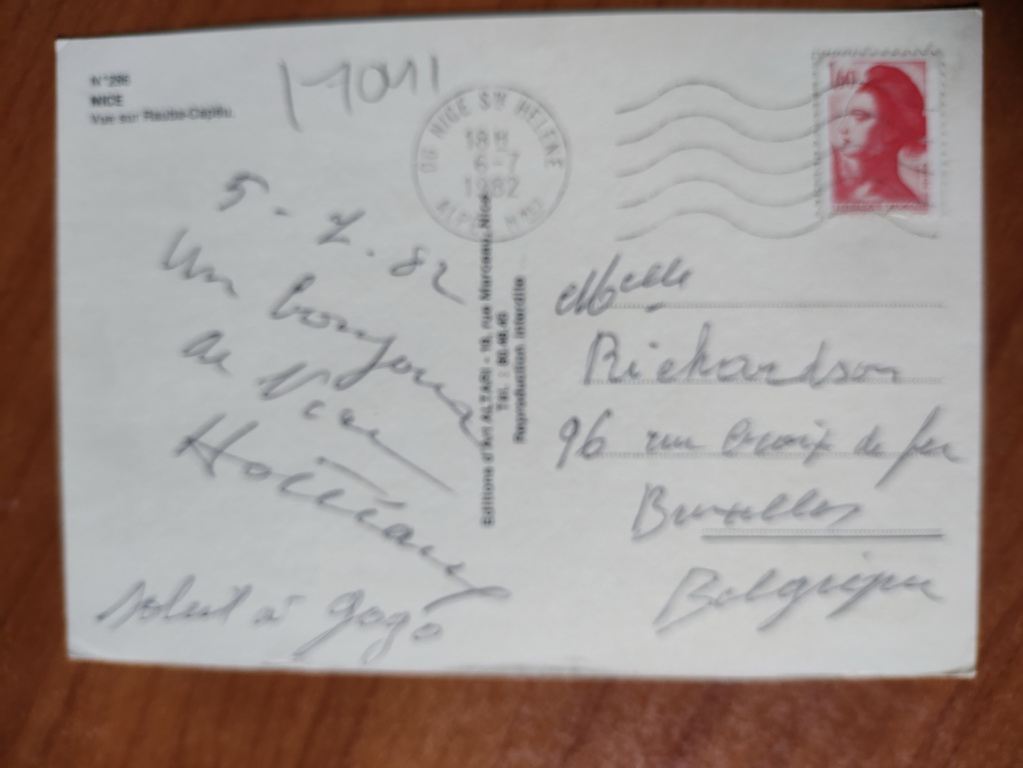 N°286
NICE
Vue sur Rauba-Capéu.
17011
06 NICE STE HELENE
18H
6-7
1982
ALPES MMES
1,60
5-7.82
Un bonjour
de Nice
Soleil à gogo
Editions d'Art ALTARI - 19, rue Marceau, Nice
Tél. :
Reproduction interdite
Melle
Richardson
96 rue Croix de fer
Bruxelles
Belgique